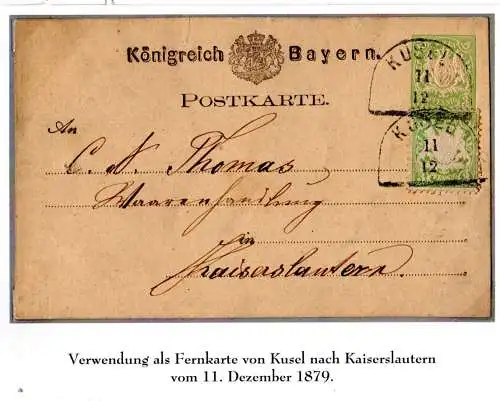 Königreich Bayern.
POSTKARTE.
An
C. N. Thomas
Waarenhandlung
in
Kaiserslautern.
KUSEL
11
12
KUSEL
11
12
Verwendung als Fernkarte von Kusel nach Kaiserslautern
vom 11. Dezember 1879.